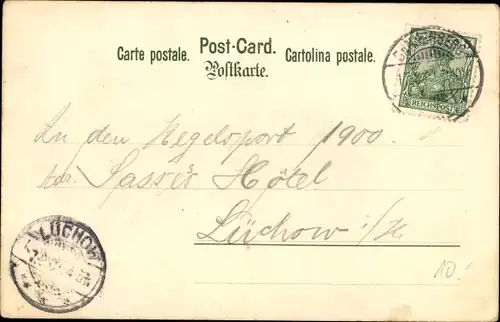 Carte postale. Post-Card. Cartolina postale.
Postkarte.
REICHSPOST
In den Kegelsport 1900.
Adr. Sasse's Hôtel
Lüchow i/H
LÜCHOW
10!